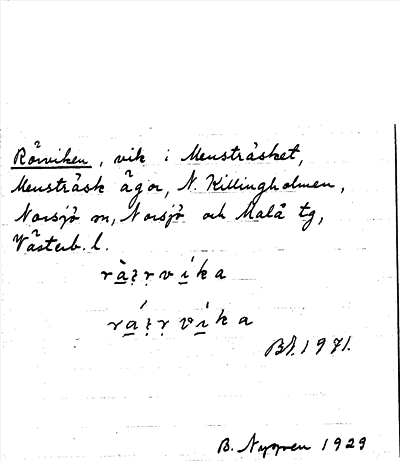 Rörviken, vik i Mensträsket,
Mensträsk ägor, N. Killingholmen,
Norsjö sn, Norsjö och Malå tg,
Västerb. l.
Bl. 1971.
B. Nygren 1929